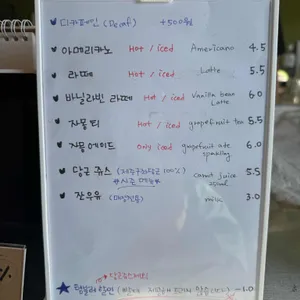 디카페인 (Decaf) +500원
아메리카노 Hot / iced Americano 4.5
라떼 Hot / iced Latte 5.5
바닐라빈 라떼 Hot / iced Vanilla bean Latte 6.0
자몽 티 Hot / iced grapefruit tea 5.5
자몽에이드 Only iced grapefruit ade sparkling 6.0
당근 쥬스 (제주구좌당근 100%) carrot juice 5.5
흰우유 milk 3.0
텀블러 할인 -1.0